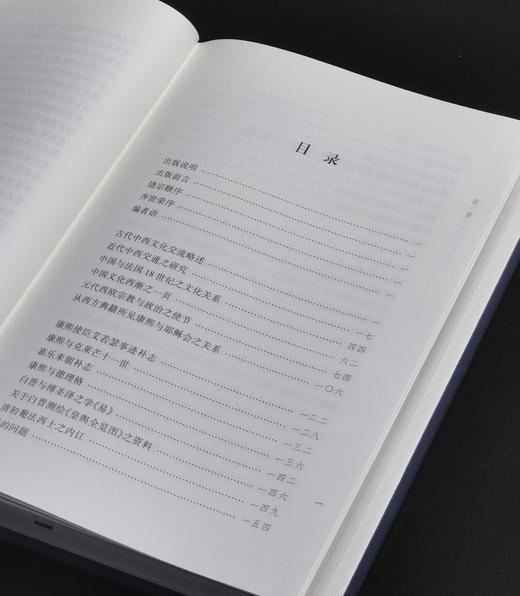 目录
出版说明 一
出版前言 一
饶宗颐序 一
齐世荣序 一
编者语 一
古代中西文化交流略述 一
近代中西交通之研究 一七
中国与法国18世纪之文化关系 四四
中国文化西渐之一页 六二
元代西欧宗教与政治之使节 七四
从西方典籍所见康熙与耶稣会之关系 一〇六
康熙使臣艾若瑟事迹补志 一二二
康熙与克莱芒十一世 一二八
嘉乐来朝补志 一三二
康熙与德理格 一三六
白晋与傅圣泽之学《易》 一四二
关于白晋测绘《皇舆全览图》之资料 一四六
清初葡法西士之内讧 一四九
的问题 一五四
目录
一